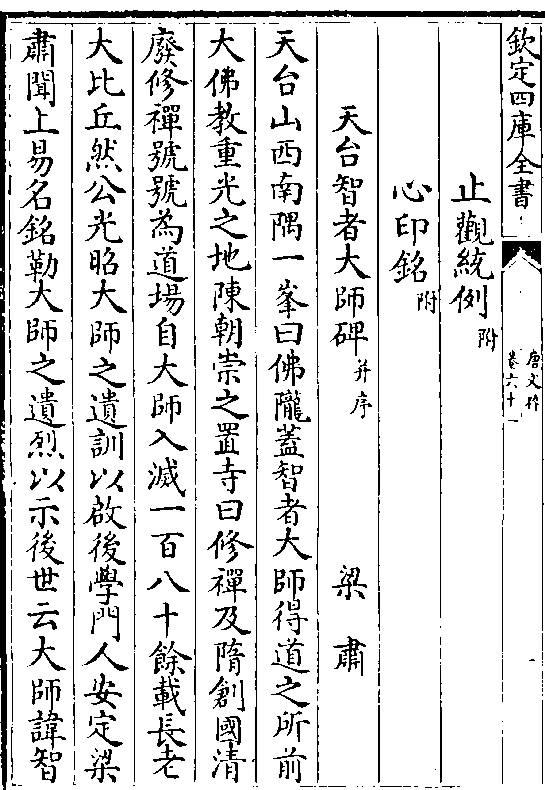 欽定四庫全書
唐文粹
卷六十一
止觀統例附
心印銘附
天台智者大師碑并序　梁肅
天台山西南隅一峯曰佛隴蓋智者大師得道之所前
大佛教重光之地陳朝崇之置寺曰修禪及隋創國清
廢修禪號號為道場自大師入滅一百八十餘載長老
大比丘然公光昭大師之遺訓以啟後學門人安定梁
肅聞上易名銘勒大師之遺烈以示後世云大師諱智